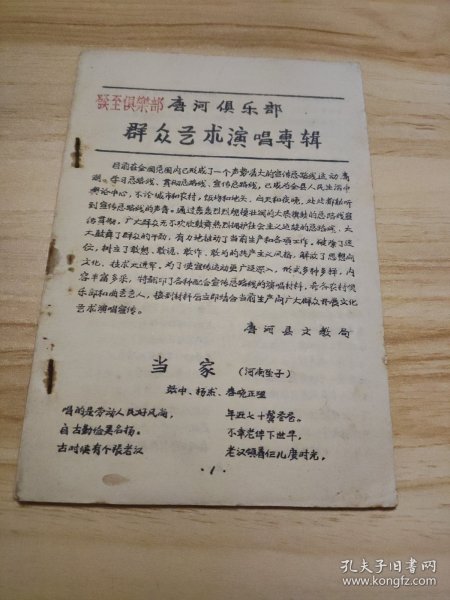 发至俱樂部 唐河俱乐部
群众艺术演唱專辑
目前在全国范围内已形成了一个声势浩大的宣传总路线运动高
潮。学习总路线、贯彻总路线、宣传总路线，已成为全县人民生活中
舆论中心，不论城市和农村，
到宣传总路线的声音。通过轰轰烈烈规模壮阔的大张旗鼓的总路线宣
传贯彻。广大群众无不欢欣鼓舞热烈拥护社会主义建设的总路线，大
大鼓舞了群众的干劲，有力地推动了当前生产和各项工作，破除了迷
信，树立了敢想、敢说、敢作、敢为的共产主义风格，解放了思想向
文化、技术大进军。为了使宣传运动更广泛深入，形式多种多样，内
容丰富多采，特翻印了各种配合宣传总路线的演唱材料，希各农村俱
乐部和曲艺艺人，接到材料后立即结合当前生产向广大群众开展文化
艺术演唱宣传。
唐河县文教局
当家 （河南坠子）
唱的是劳动人民好风尚，
自古勤俭美名扬。
古时候有个张老汉
年近七十鬓苍苍。
不幸老伴下世早，
老汉领着仨儿度时光，
·1·
孔夫子旧书网
www.kongfz.com